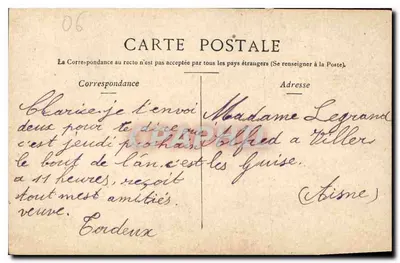 06
CARTE POSTALE
La Correspondance au recto n'est pas acceptée par tous les pays étrangers (Se renseigner à la Poste).
Correspondance
Adresse
je t'envoi
deux pour te dire que
c'est jeudi prochain
le bout de l'an. c'est
a 11 heures, reçoit
tout mest amitiés.
veuve.
Tordeux
Madame Legrand
Alfred a Villers
les Guise.
(Aisne)